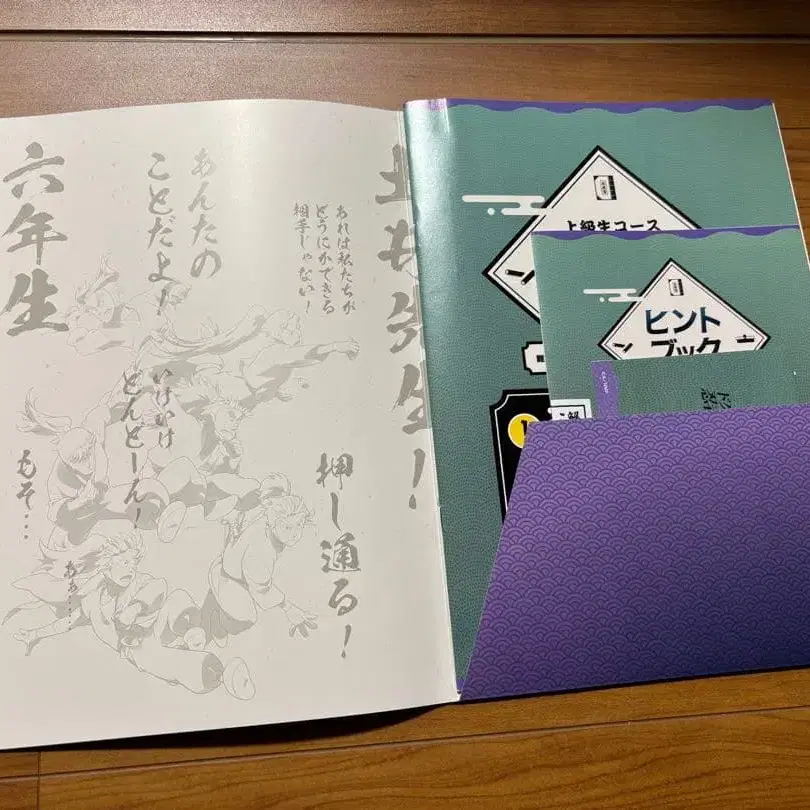 土井先生!
あれは私たちが
どうにかできる
相手じゃない!
押し通る!
あんたの
ことだよ!
いけいけ
どんどーん!
六年生
もそ…
ああ……
上級生コース
ヒント
ブック